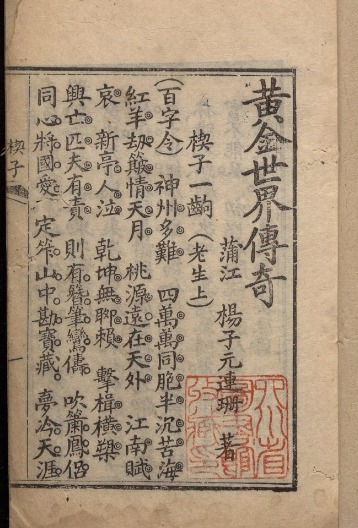 黃金世界傳奇
蒲江 楊子元連珊 著
楔子一齣 (老生上)
(百字令) 神州多難 四萬萬同胞半沉苦海
紅羊劫簸情天月 桃源遠在天外 江南賦
哀 新亭人泣 乾坤無聊賴 擊楫橫槊
興亡匹夫有責 則有簪筆鸞儔 吹簫鳳侶
同心將國愛 定笶山中勘寶藏 夢冷天涯
楔子
一